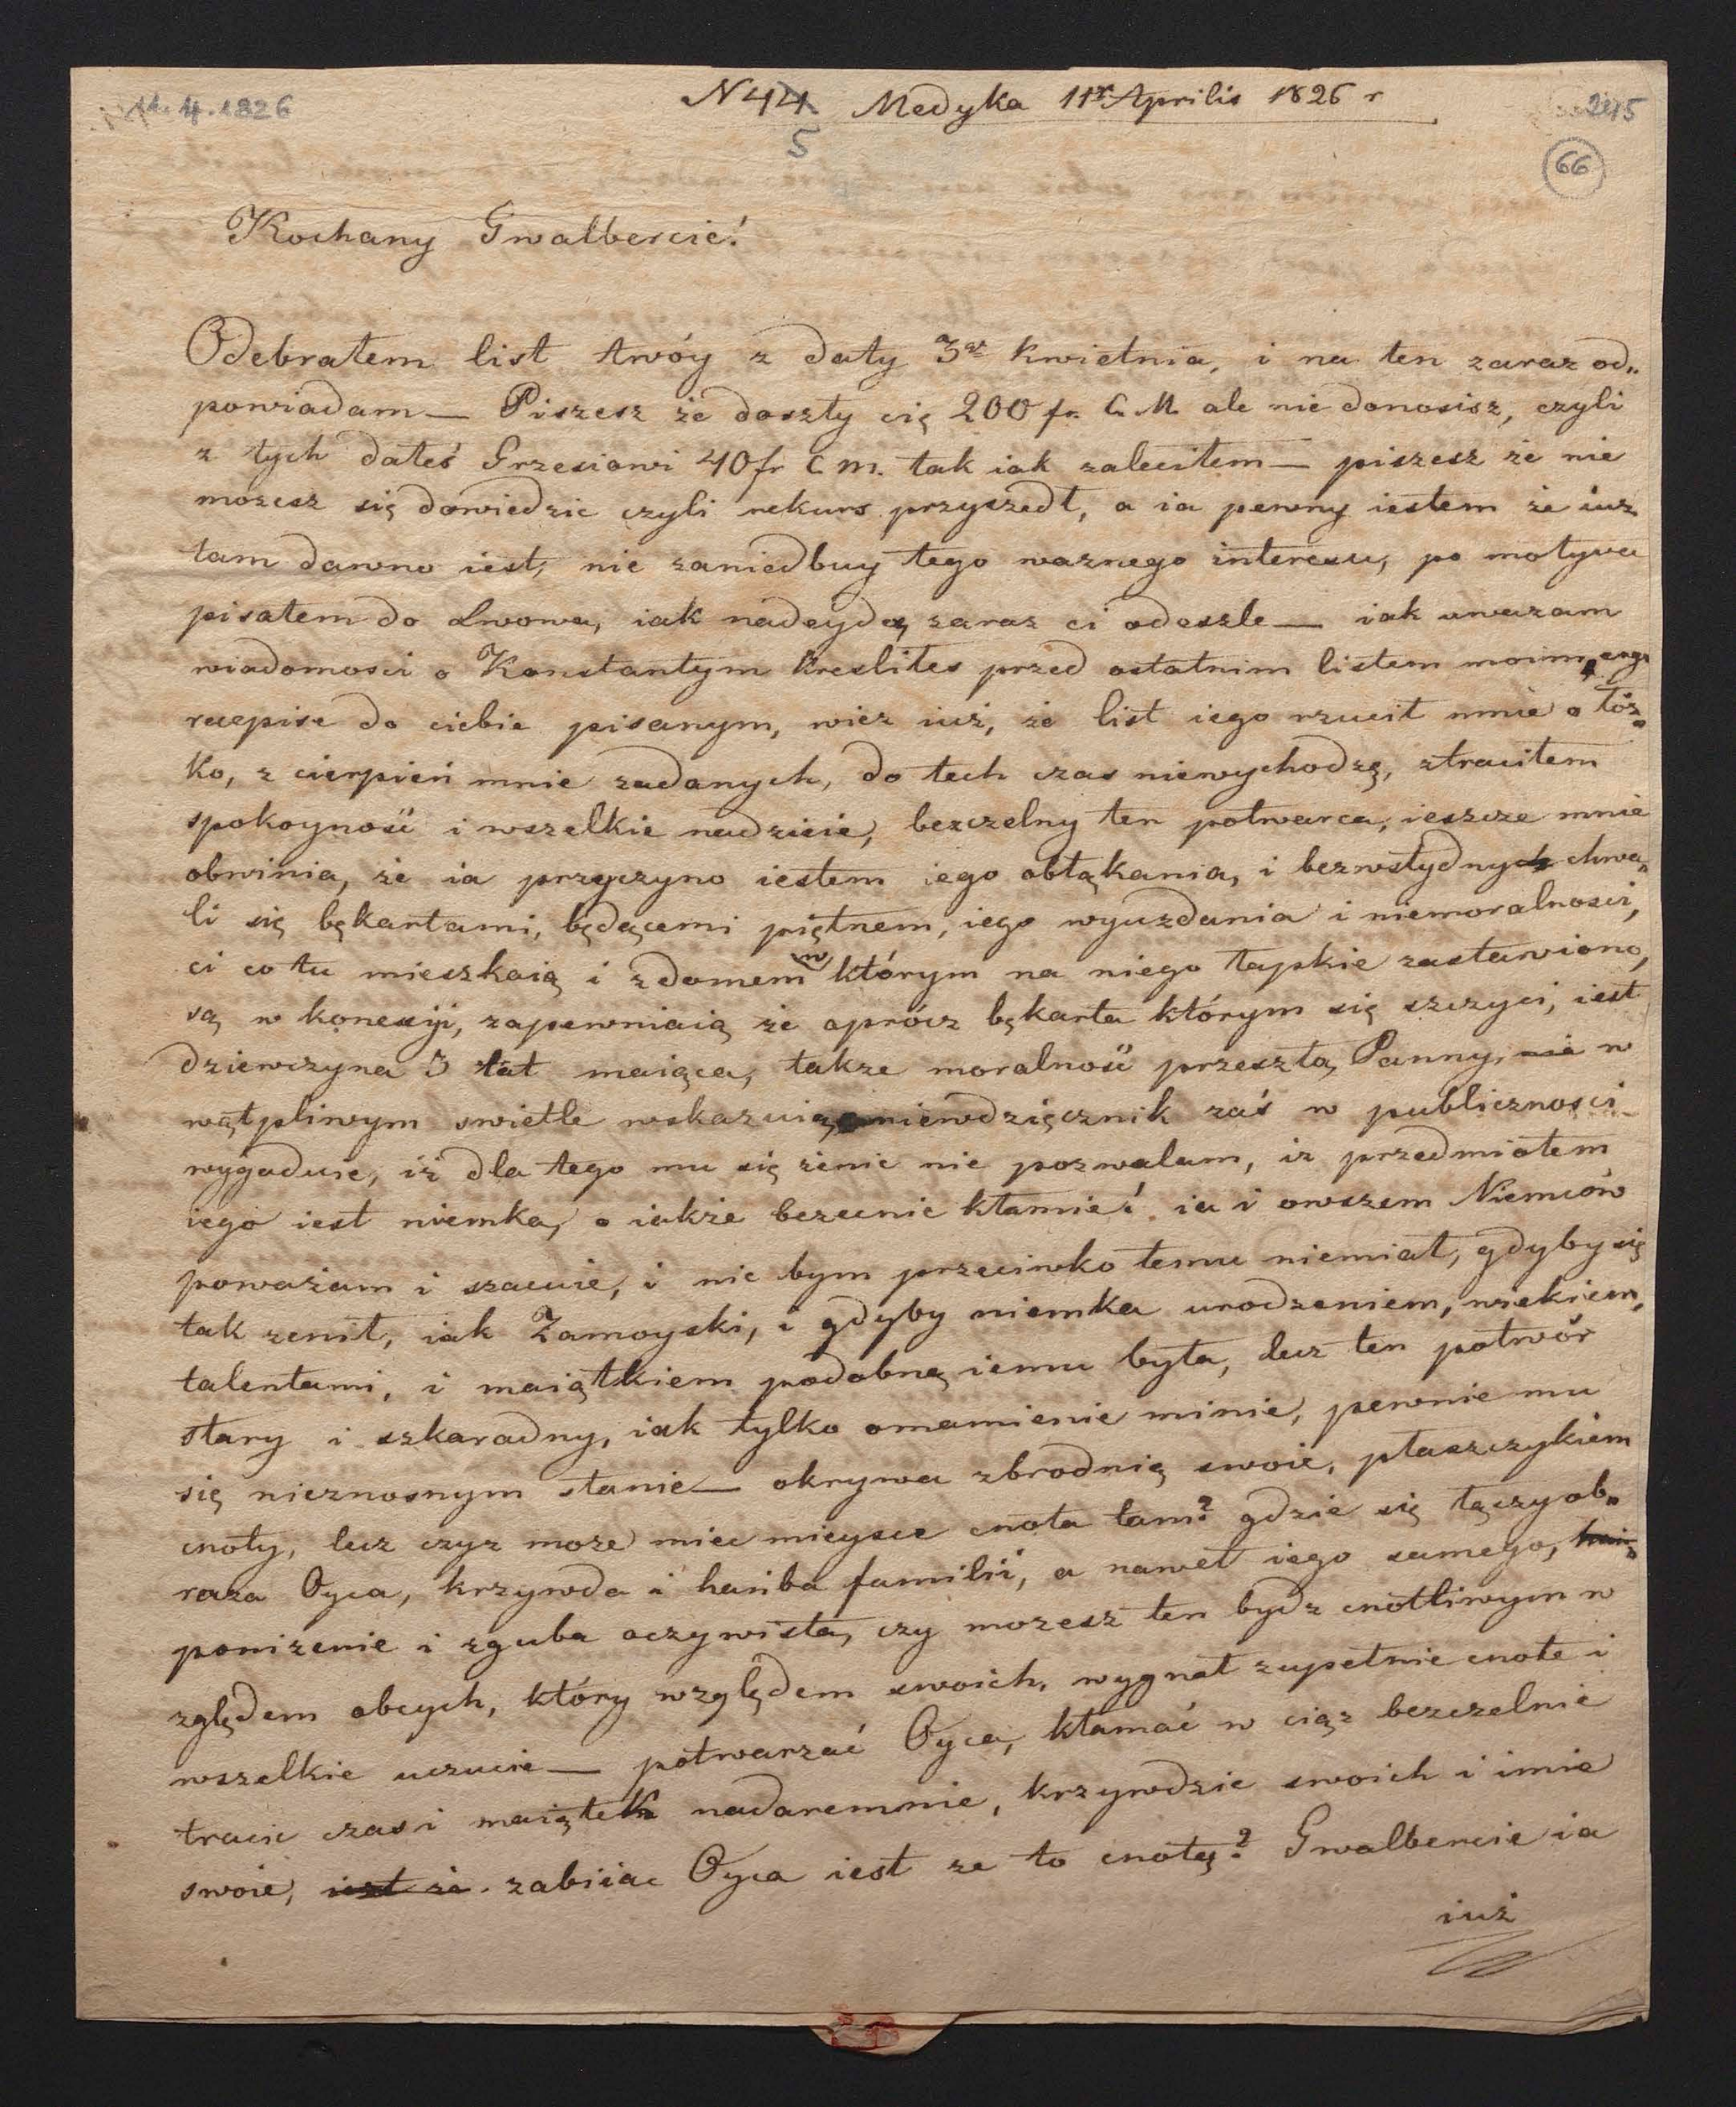 11. 4. 1826
N 44 Medyka 11ͬ Aprilis 1826 r
245
5
66
Kochany Gwalbercie!
Odebrałem list twóy z daty 3ͬ Kwietnia, i na ten zaraz od„
powiadam — Piszesz że doszły cię 200 fr. C. M. ale nie donosisz, czyli
z tych dałeś Grzesiowi 40 fr C m. tak iak zaleciłem — piszesz że nie
mozesz się dowiedzic czyli rekurs przyszedł, a ia pewny iestem że iuz
tam dawno iest, nie zaniedbuy tego waznego interesu, po motywa
pisałem do Lwowa, iak nadeydą zaraz ci odeszle — iak uwazam
wiadomosci o Konstantym kresliłes przed ostatnim listem moim,
recepise do ciebie pisanym, wiez iuż, że list iego rzucił mnie o łóz„
ko, z cierpień mnie zadanych, do tech czas niewychodzę, straciłem
spokoyność i wszelkie nadzieie, bezczelny ten potwarca, ieszcze mnie
obwinia, że ia przyczyno iestem iego obłąkania, i bezwstydnych chwa„
li się bękartami, będącemi piętnem, iego wyuzdania i niemoralnosci,
ci co tu mieszkaią i z domem w którym na niego łapskie zastawiono,
są w konexiji, zapewniaią że oprócz bękarta którym się szczyci, iest
dziewczyna 3 lat maiąca, takze moralność przeszłą Panny, nie w
wątpliwym swietle wskazuią niewdzięcznik zaś w publicznosci
wygaduie, iż dla tego mu się żenic nie pozwalam, iz przedmiotem
iego iest niemka, o iakże bezecnie kłamie! ia i owszem Niemców
poważam i szacuie, i nic bym przeciwko temu niemiał, gdyby się
tak zenił, iak Zamoyski, i gdyby niemka urodzeniem, wiekiem,
talentami, i maiątkiem podobną iemu była, lecz ten potwór
stary i szkaradny, iak tylko omamienie minie, pewnie mu
się nieznosnym stanie — okrywa zbrodnią swoie, płaszczykiem
cnoty, lecz czyz moze miec mieysce cnota tam? gdzie się łączy ob„
raza Oyca, krzywda i hańba familii, a nawet iego samego,
ponizenie i zguba oczywista, czy mozesz ten bydz cnotliwym w
zględem obcych, który względem swoich, wygnał zupełnie cnote i
wszelkie uczucie — potwarzać Oyca, kłamać w ciąz bezczelnie
tracic czas i maiątek nadaremnie, krzywdzic swoich i imie
swoie, iest że zabiiac Oyca iest ze to cnotą? Gwalbercie ia
iuż